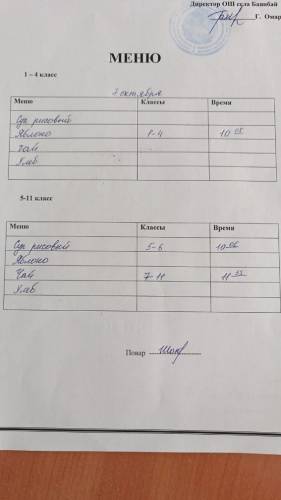 Директор ОШ села Башбай
Г. Омар
МЕНЮ
1 – 4 класс
октября
Меню Классы Время
Суп рисовый
Яблоко 0-4 10
Чай
Хлеб
5-11 класс
Меню Классы Время
Суп рисовый 5-6 10
Яблоко
Чай 7-11 11
Хлеб
Повар